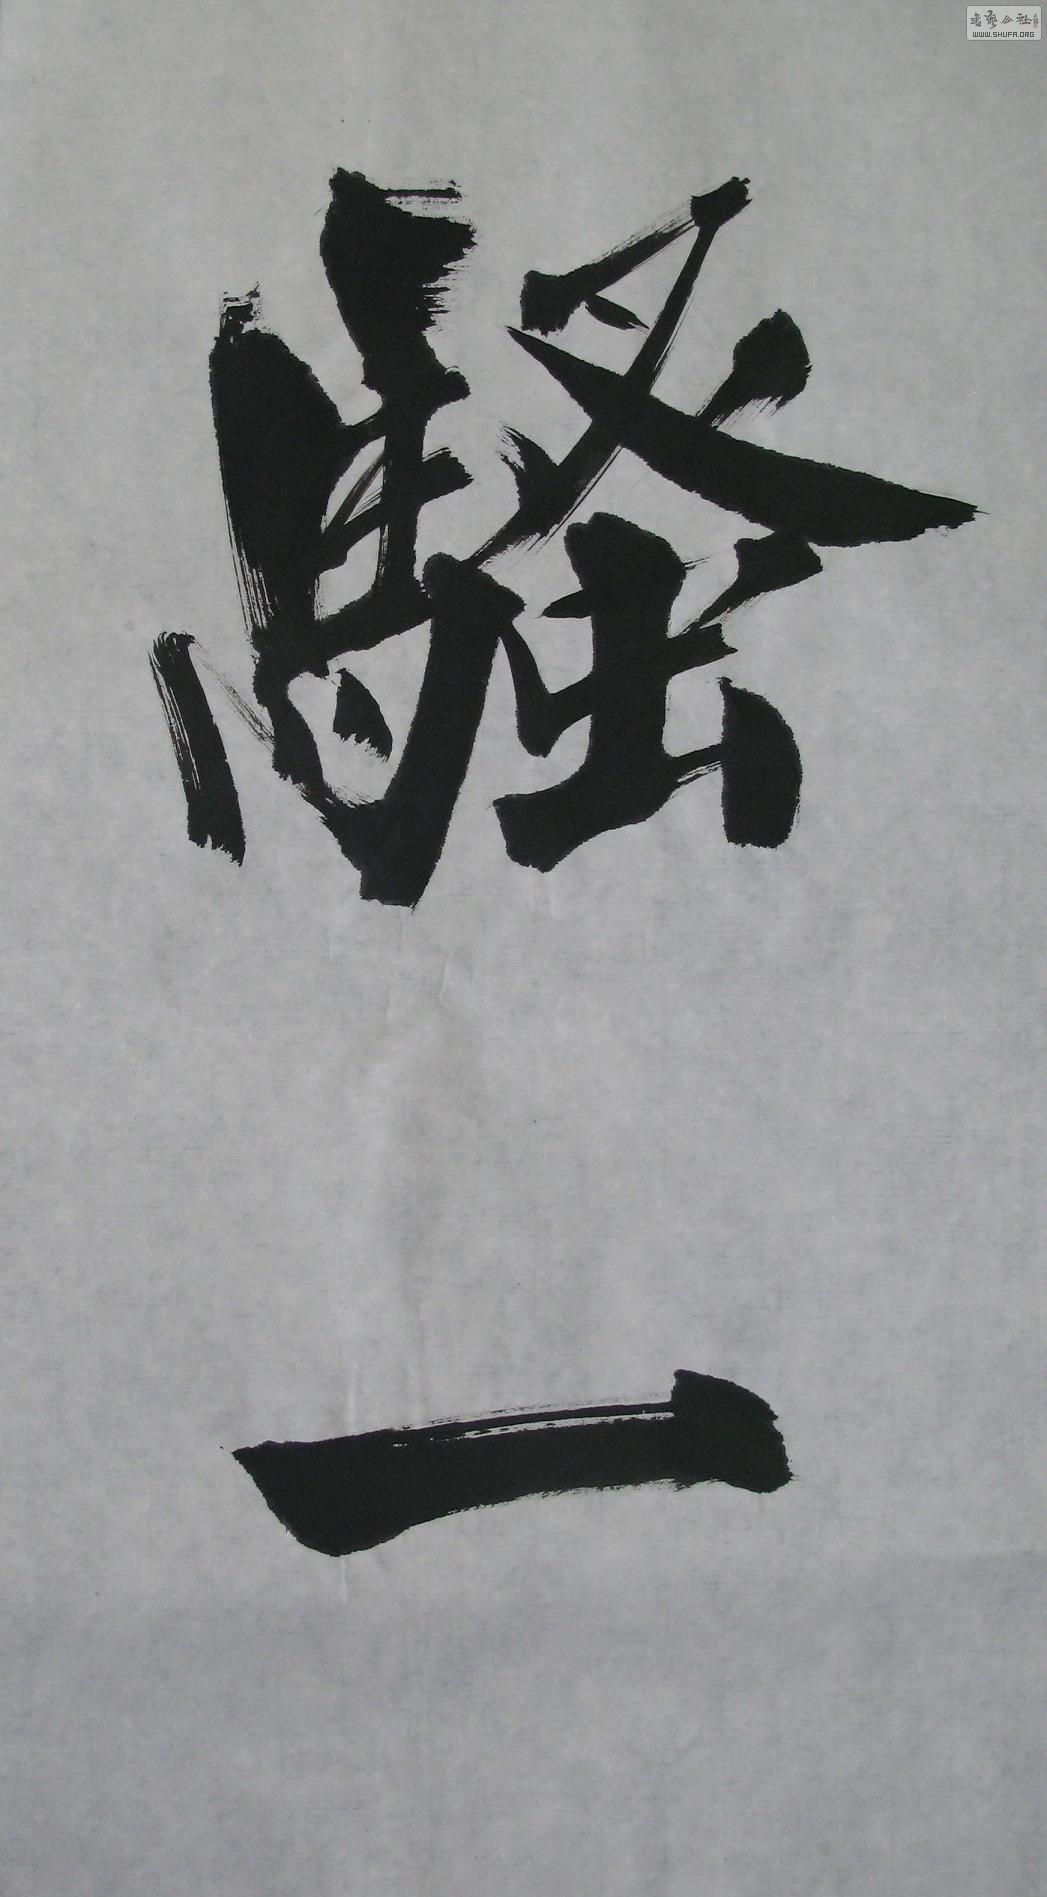 騷
一
書藝公社
WWW.SHUFA.ORG